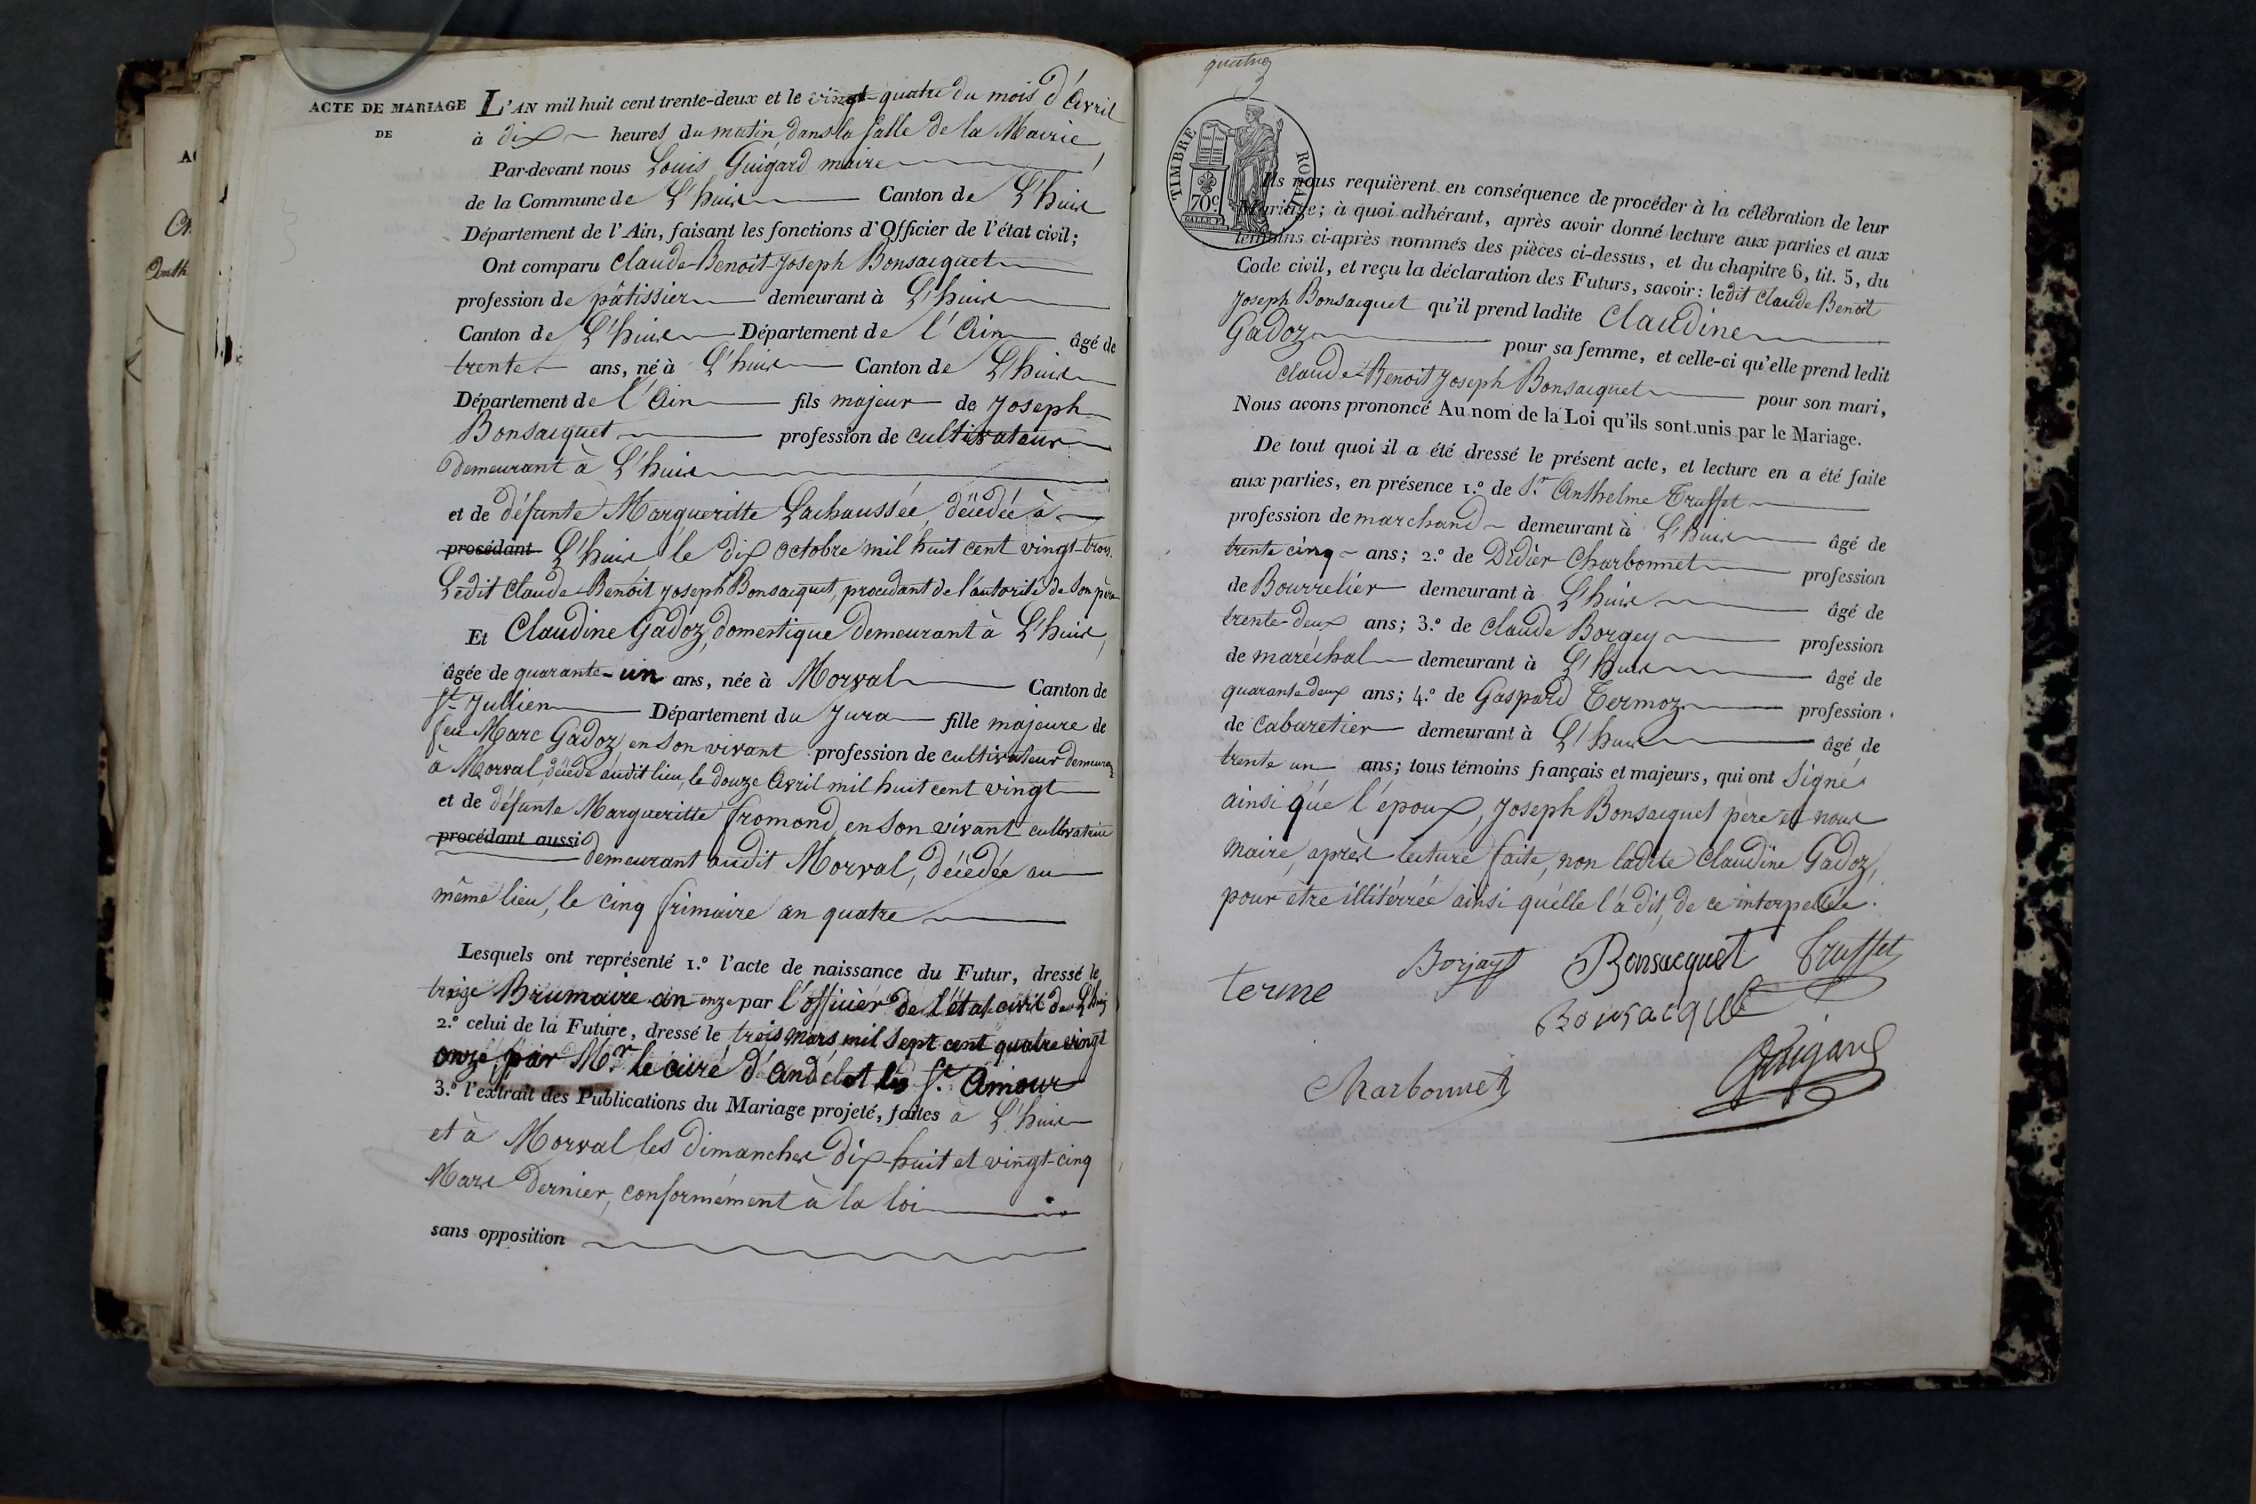 ACTE DE MARIAGE
DE
L'AN mil huit cent trente-deux et le vingt-quatre du mois d'avril
à dix heures du matin dans la salle de la Mairie,
Par-devant nous Louis Guigard maire
de la Commune de L'huis Canton de L'huis
Département de l'Ain, faisant les fonctions d'Officier de l'état civil;
Ont comparu Claude-Benoit-Joseph Bonsacquet
profession de pâtissier demeurant à L'huis
Canton de L'huis Département de l'Ain âgé de
trente ans, né à L'huis Canton de L'huis
Département de l'Ain fils majeur de Joseph
Bonsacquet profession de cultivateur
demeurant à L'huis
et de défunte Margueritte Lachaussée, décédée à
procédant L'huis le dix octobre mil huit cent vingt-trois.
Ledit Claude-Benoit Joseph Bonsacquet, procédant de l'autorité de son père
Et Claudine Gadoz, domestique demeurant à L'huis,
âgée de quarante-un ans, née à Morval Canton de
St Jullien Département du Jura fille majeure de
feu Marc Gadoz, en son vivant profession de cultivateur demeurant
à Morval, décédé audit lieu, le douze avril mil huit cent vingt
et de défunte Margueritte fromond, en son vivant cultivatrice
procédant aussi demeurant audit Morval, décédée au
même lieu, le cinq frimaire an quatre
Lesquels ont représenté 1.º l'acte de naissance du Futur, dressé le
treize Brumaire an onze par l'officier de l'état civil de L'huis
2.º celui de la Future, dressé le trois mars mil sept cent quatre vingt
onze, par Mr. le curé d'andelot les St. amour
3.º l'extrait des Publications du Mariage projeté, faites à L'huis
et à Morval les dimanches dix-huit et vingt-cinq
Mars dernier, conformément à la loi
sans opposition
quatre
TIMBRE ROYAL
70 c.
Ils nous requièrent en conséquence de procéder à la célébration de leur
Mariage; à quoi adhérant, après avoir donné lecture aux parties et aux
témoins ci-après nommés des pièces ci-dessus, et du chapitre 6, tit. 5, du
Code civil, et reçu la déclaration des Futurs, savoir: ledit Claude Benoit
Joseph Bonsacquet qu'il prend ladite Claudine
Gadoz pour sa femme, et celle-ci qu'elle prend ledit
Claude-Benoit Joseph Bonsacquet pour son mari,
Nous avons prononcé Au nom de la Loi qu'ils sont unis par le Mariage.
De tout quoi il a été dressé le présent acte, et lecture en a été faite
aux parties, en présence 1.º de Sr. Anthelme Truffet
profession de marchand demeurant à L'huis âgé de
trente cinq ans; 2.º de Didier Charbonnet profession
de Bourrelier demeurant à L'huis âgé de
trente-deux ans; 3.º de Claude Borgey profession
de maréchal demeurant à L'huis âgé de
quarante deux ans; 4.º de Gaspard Termoz profession
de cabaretier demeurant à L'huis âgé de
trente un ans; tous témoins français et majeurs, qui ont signé
ainsi que l'époux, Joseph Bonsacquet père et nous
maire, après lecture faite, non ladite Claudine Gadoz,
pour être illitérrée ainsi qu'elle l'a dit, de ce interpellée.
Borjay Bonsacquet Truffet
terme
Bonsacquet
Guigard
Charbonnet